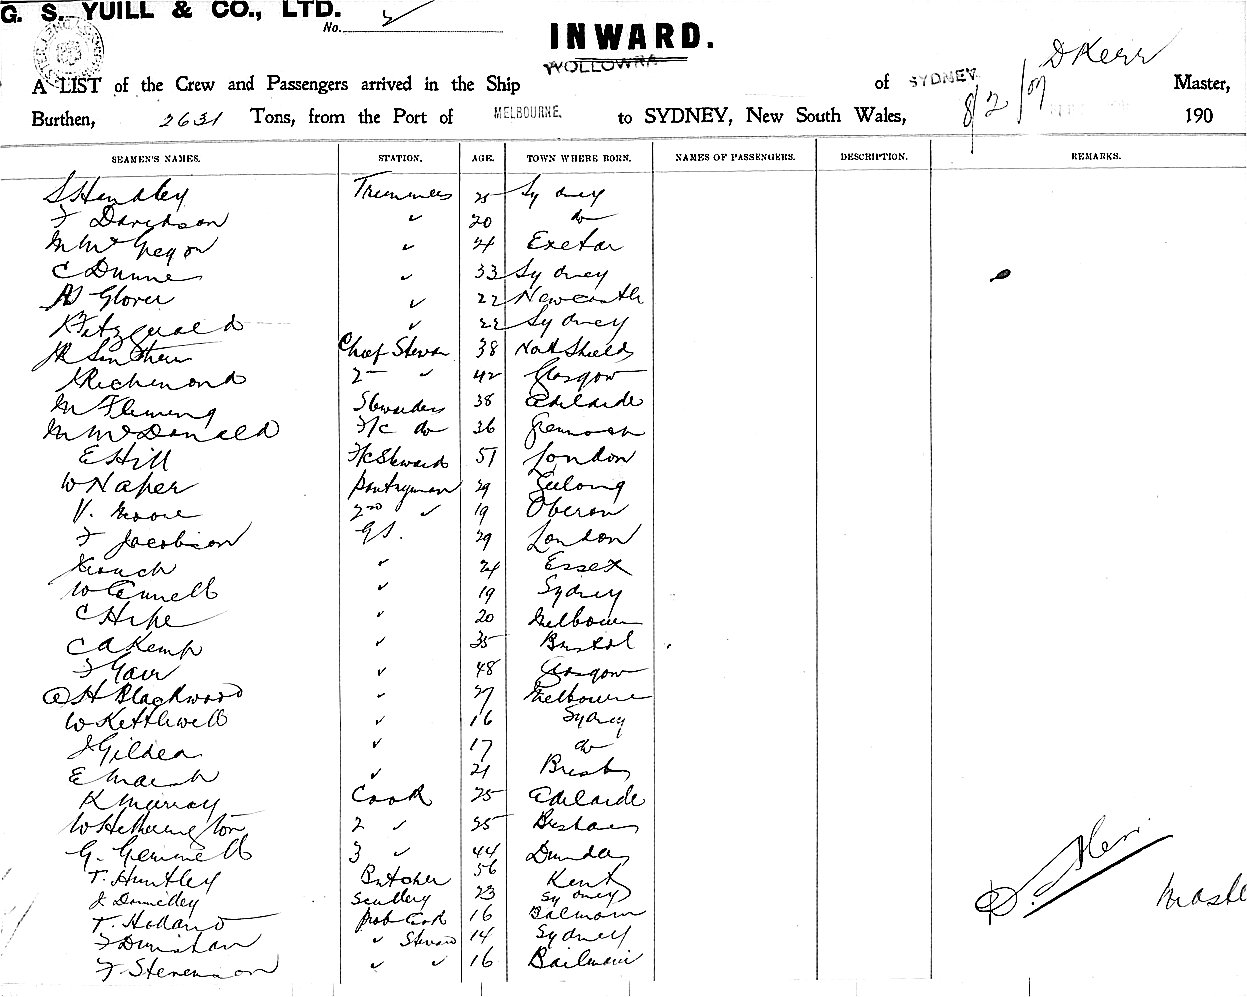 G. S. YUILL & CO., LTD.
No.
INWARD.
WOLLOWRA
A LIST of the Crew and Passengers arrived in the Ship of SYDNEY D Kerr Master,
Burthen, 2631 Tons, from the Port of MELBOURNE. to SYDNEY, New South Wales, 8/2/07 190
SEAMEN'S NAMES. STATION. AGE. TOWN WHERE BORN. NAMES OF PASSENGERS. DESCRIPTION. REMARKS.
S Handley Trimmers 25 Sydney
F Davidson ✓ 20 do
M McGregor ✓ Exeter
C Dunne ✓ 33 Sydney
Glover ✓ 22 Newcastle
Fitzgerald ✓ 22 Sydney
Chief Stewar 38 North Shields
Richmond 2 ✓ 42 Glasgow
M Fleming Stewardess 38 Adelaide
M McDonald F/c do 36 Greenock
E Hill F/c Stewards 51 London
W Naper Pantryman 29 Geelong
V. Moore 2nd ✓ 19 Oberon
F Jacobson G S. 29 London
✓ 24 Essex
W ✓ 19 Sydney
C Hope ✓ 20 Melbourne
C A Kemp ✓ 35 Bristol
F Gair ✓ 48 Glasgow
H Blackwood ✓ 27 Melbourne
W Kettlewell ✓ 16 Sydney
J Gilden ✓ 17 do
E Marsh ✓ 21 Brisb
K Murray Cook 25 Adelaide
W Hetherington 2 ✓ 25 Brisbane
G. Gemmell 3 ✓ 44 Dundas
T. Huntley Butcher 56 Kent
J Donnelley Scullery 23 Sydney
T. Holland Prob Cook 16 Balmain
F Dunishan ✓ Steward 14 Sydney
F. Stevenson ✓ ✓ 16 Balmain
D. Kerr
Maste